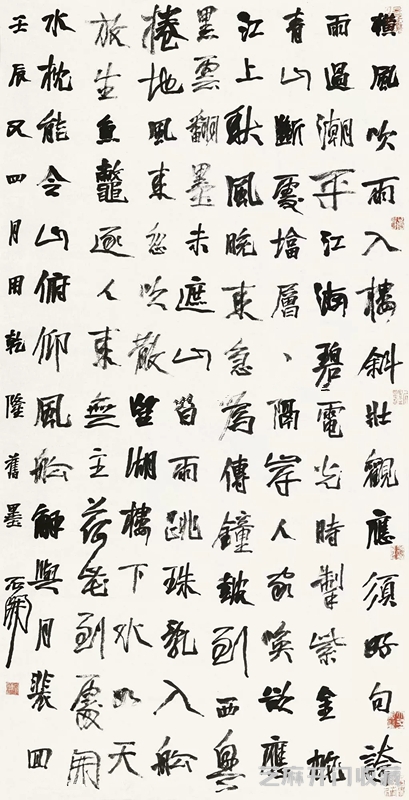 橫風吹雨入樓斜壯觀應須好句誇
雨過潮平江海碧電光時掣紫金蛇
青山斷處塔層丶隔岸人家喚欲應
江上秋風晚來急為傳鐘鼓到西興
黑雲翻墨未遮山白雨跳珠亂入船
捲地風來忽吹散望湖樓下水如天
放生魚鼈逐人來無主荷花到處開
水枕能令山俯仰風船解與月裴回
壬辰又四月用乾隆舊墨 石開
芝麻开门收藏